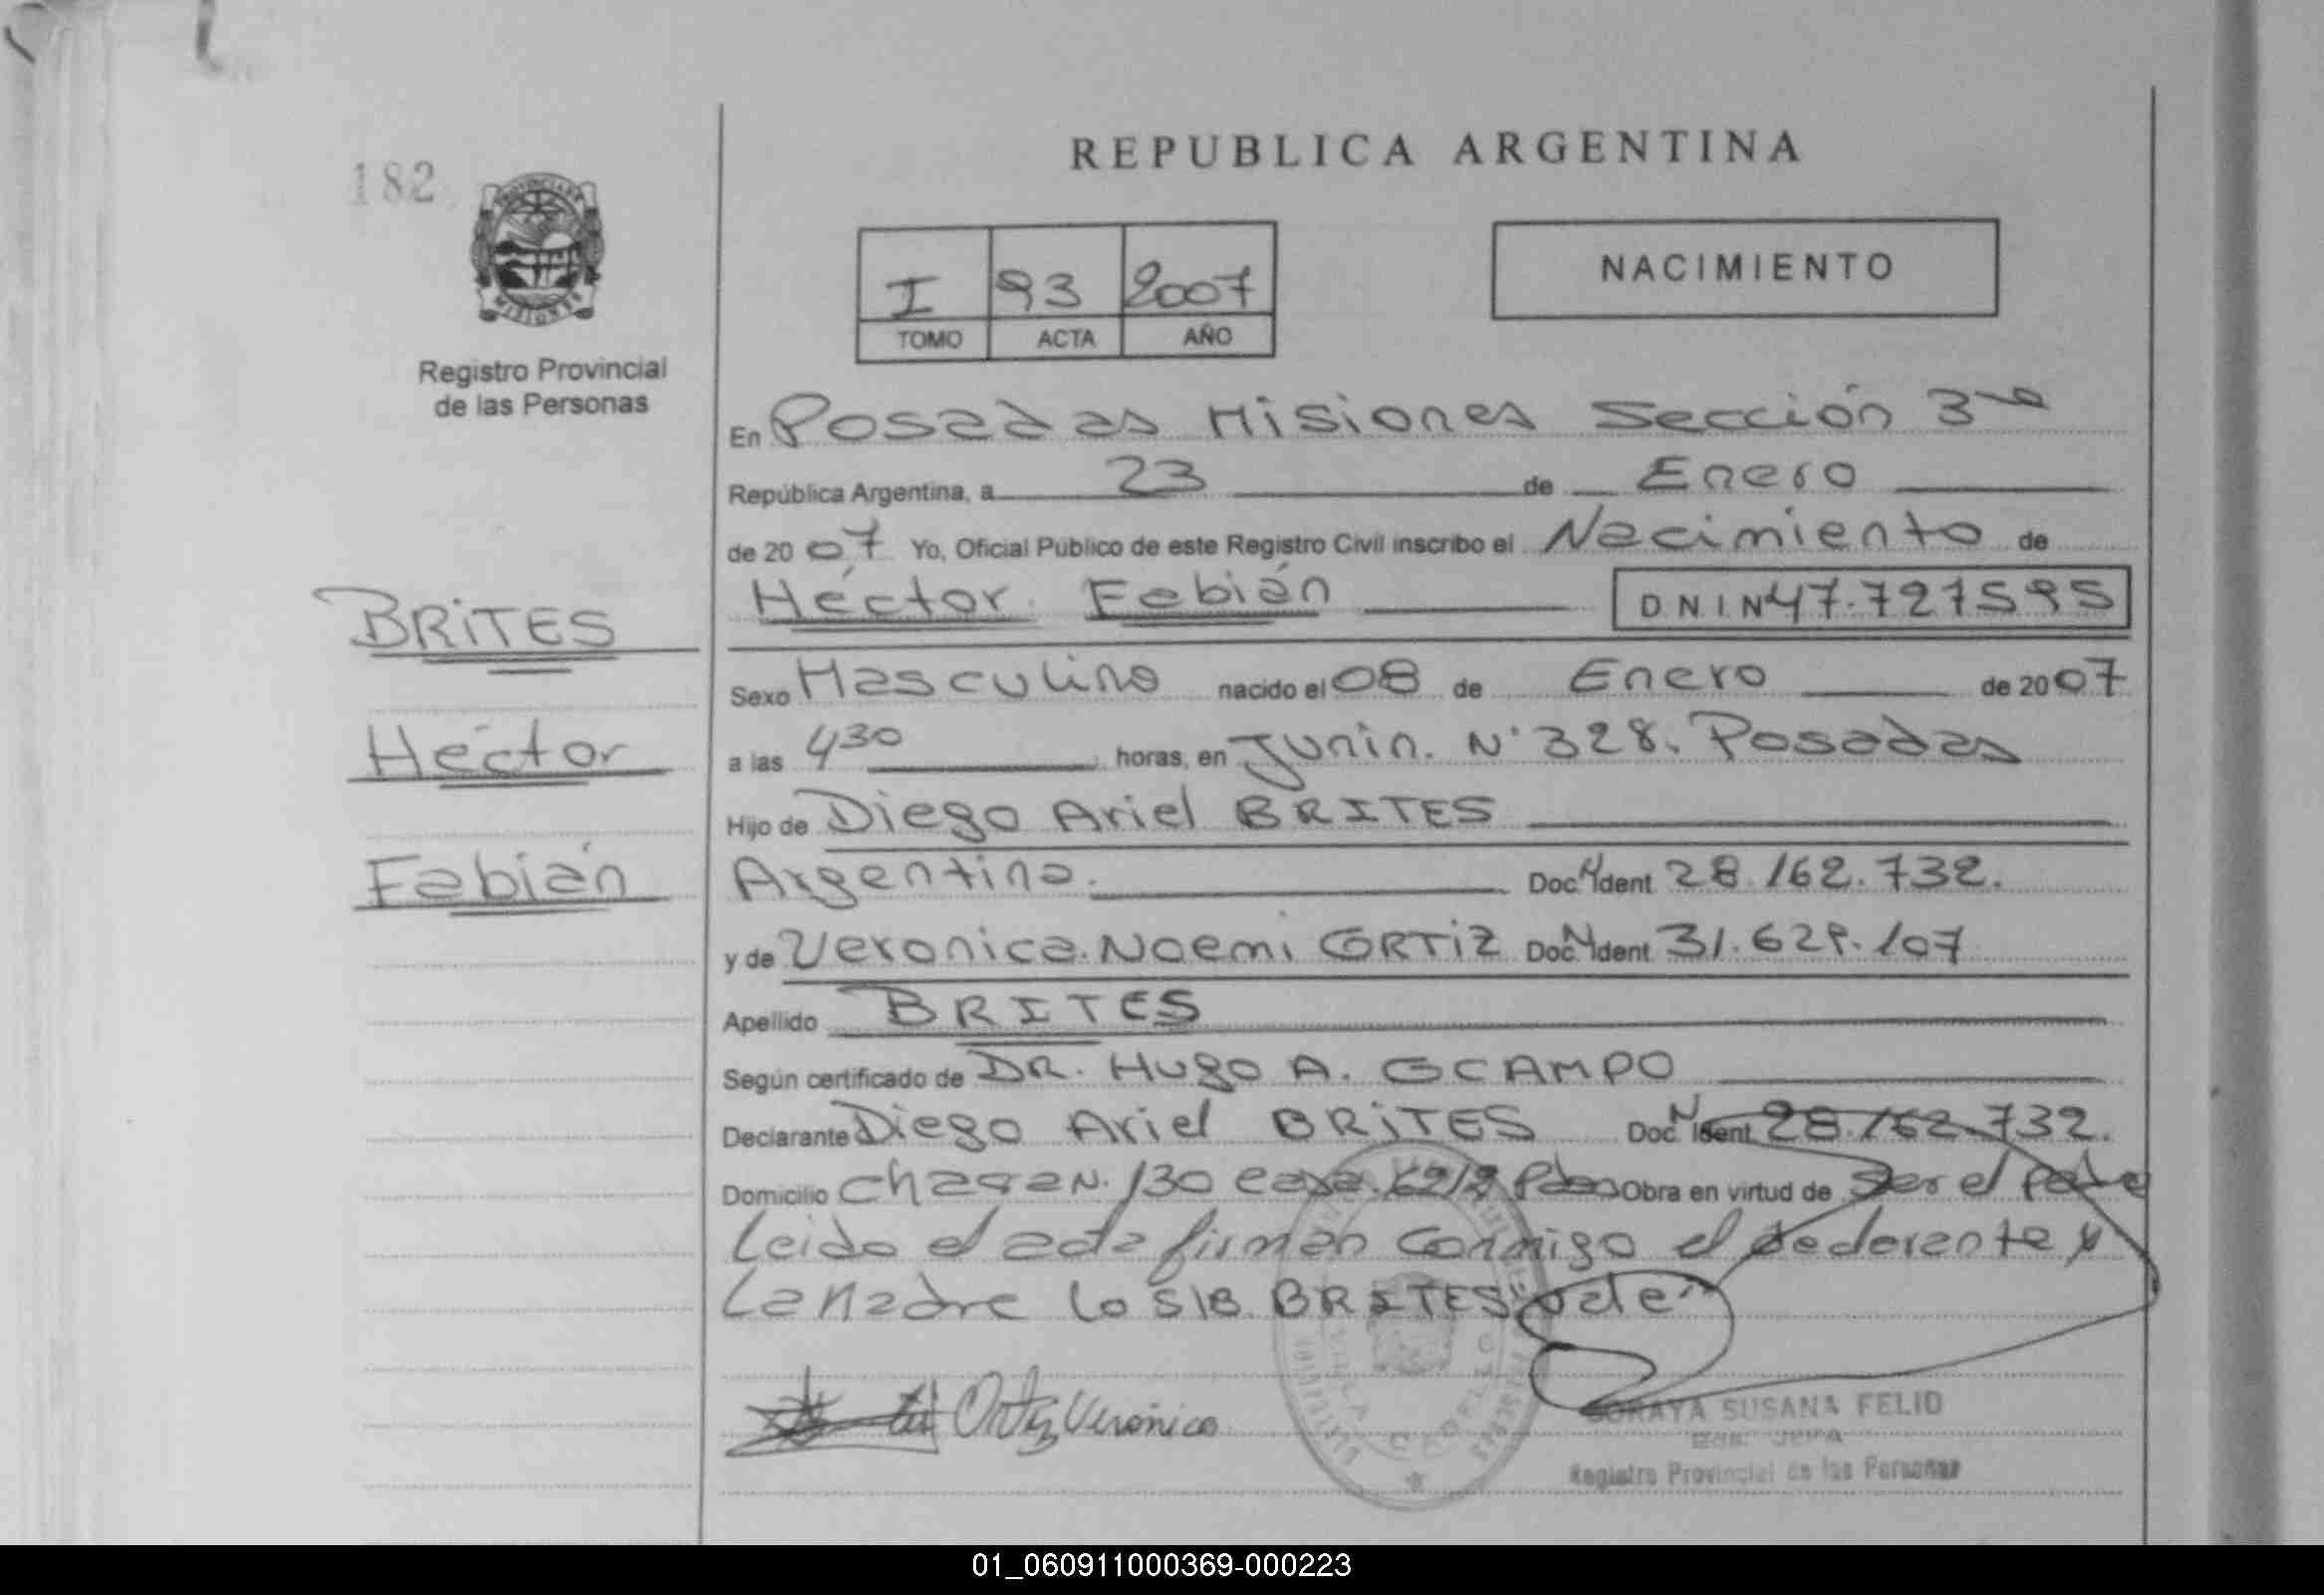 182
REPUBLICA ARGENTINA
NACIMIENTO
I 93 2007
TOMO ACTA AÑO
Registro Provincial
de las Personas
En Posadas Misiones Sección 3ra
República Argentina, a 23 de Enero
de 2007 Yo, Oficial Público de este Registro Civil inscribo el Nacimiento de
Héctor Fabián D N I N 47.727595
BRITES
Héctor
Fabián
Sexo Masculino nacido el 08 de Enero de 2007
a las 430 horas, en Junin. N° 328. Posadas
Hijo de Diego Ariel BRITES
Argentino. Doc. N Ident 28.162.732.
y de Veronica Noemi ORTIZ Doc. N Ident 31.629.107
Apellido BRITES
Según certificado de DR. Hugo A. OCAMPO
Declarante Diego Ariel BRITES Doc. N Ident 28.162.732.
Domicilio Chacra N. 130 casa Obra en virtud de Ser el Padre
Leido el acta firman conmigo el declarante y
La Madre Lo S/B BRITES "Vale"
Ortiz Veronica
SORAYA SUSANA FELID
Registro Provincial de las Personas
01_060911000369-000223